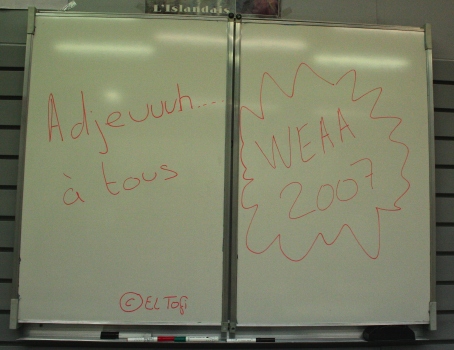 L'Islandais
Adjeuuuh....
à tous
© EL Tofi
WEAA
2007